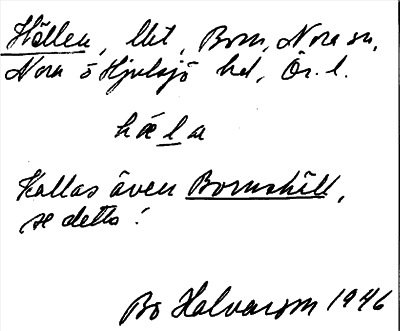 Hällen, lht, Born, Nora sn,
Nora o Hjulsjö hd, Ör. l.
hæla
Kallas även Bornshäll,
se detta!
Bo Halvarson 1946